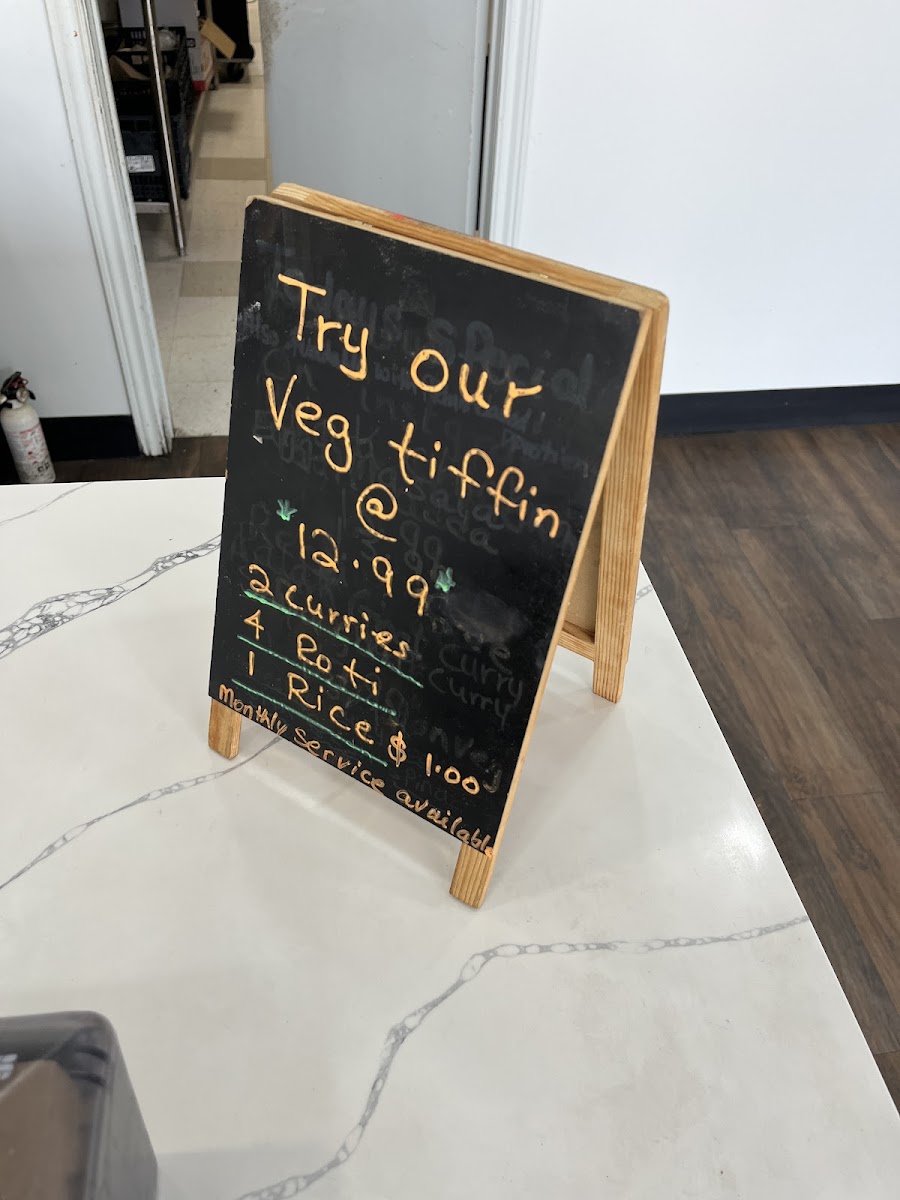 Try our
Veg tiffin
@
*12.99*
2 curries
4 Roti
1 Rice $1.00
Monthly Service available